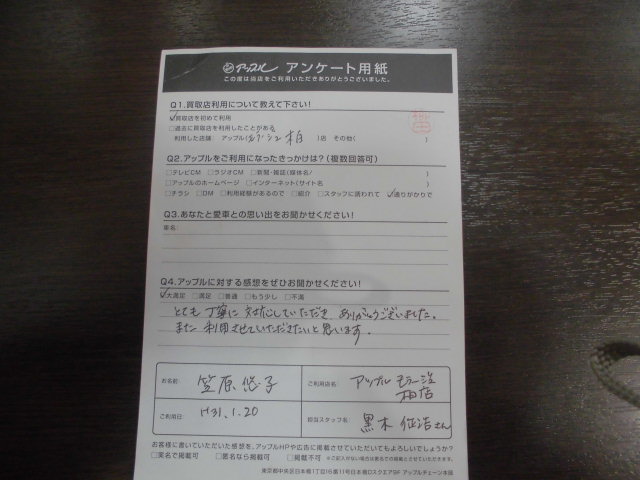 アップル アンケート用紙
この度は当店をご利用いただきありがとうございました。
Q1.買取店利用について教えて下さい!
☑買取店を初めて利用
□過去に買取店を利用したことがある
利用した店舗 アップル( 柏 )店 その他( )
Q2.アップルをご利用になったきっかけは?(複数回答可)
□テレビCM □ラジオCM □新聞・雑誌(媒体名/ )
□アップルのホームページ □インターネット(サイト名 )
□チラシ □DM □利用経験があるので □紹介 □スタッフに誘われて ☑通りがかりで
Q3.あなたと愛車との思い出をお聞かせください!
車名:
Q4.アップルに対する感想をぜひお聞かせください!
☑大満足 □満足 □普通 □もう少し □不満
とても丁寧に対応していただき、ありがとうございました。
また利用させていただきたいと思います。
お名前: 笠原 悠子
ご利用店名: アップル モラージュ
柏店
ご利用日: H31.1.20
担当スタッフ名: 黒木 征浩さん
お客様に書いていただいた感想を、アップルHPや広告に掲載させていただいてもよろしいでしょうか?
□実名で掲載 □匿名なら掲載 □掲載不可 ※ご記入がない場合は匿名での掲載とさせていただきます。
東京都中央区日本橋1丁目16番11号日本橋Dスクエア9F アップルチェーン本部